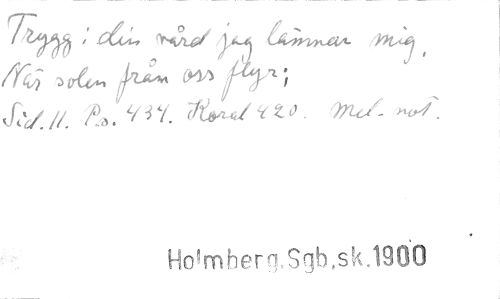 Trygg i din vård jag lämnar mig,
När solen från oss flyr;
Sid. 11. Ps. 434. Koral 420. Mel. not.
Holmberg.Sgb,sk.1900